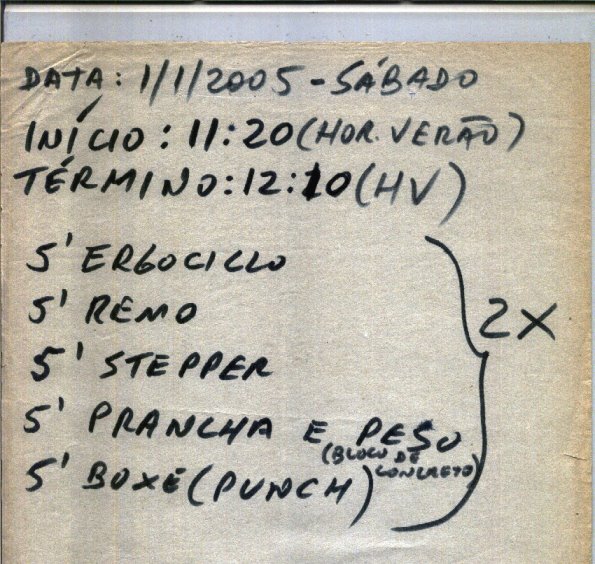 DATA: 1/1/2005 - SÁBADO
INÍCIO: 11:20 (HOR. VERÃO)
TÉRMINO: 12:10 (HV)
5' ERGOCICLO
5' REMO
5' STEPPER
5' PRANCHA E PESO
(BLOCO DE CONCRETO)
5' BOXE (PUNCH)
2X